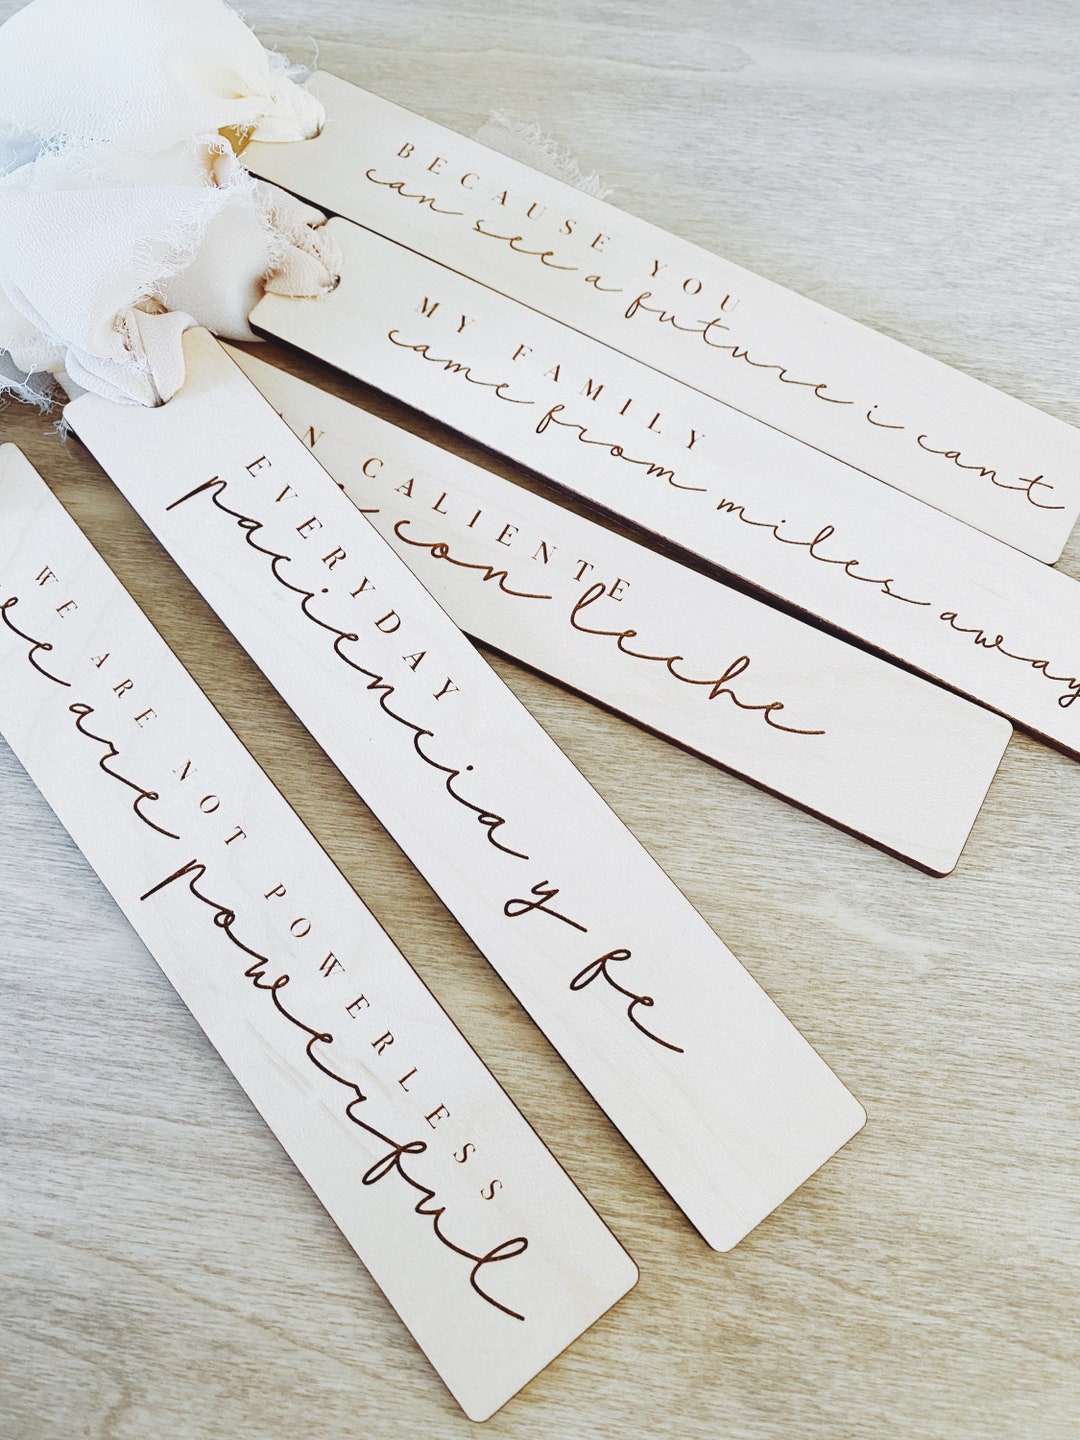 BECAUSE YOU
can see a future i cant
MY FAMILY
came from miles away
CALIENTE
con leche
EVERYDAY
paciencia y fe
WE ARE NOT POWERLESS
we are powerful